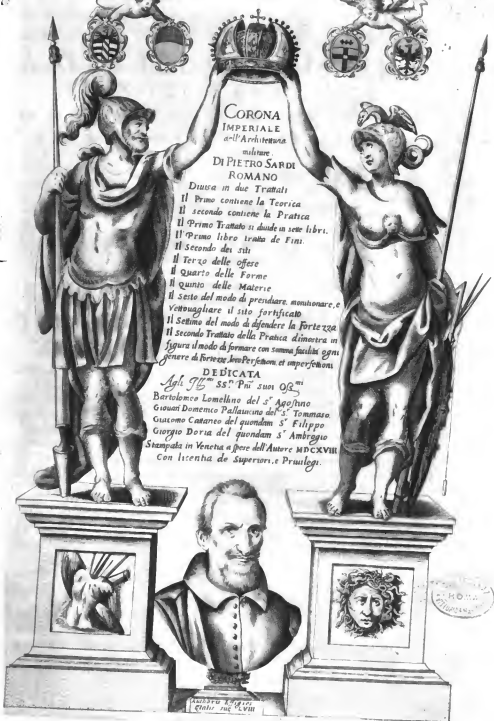 CORONA
IMPERIALE
dell'Architettura
militare.
DI PIETRO SARDI
ROMANO
Diuisa in due Trattati
Il Primo contiene la Teorica
Il secondo contiene la Pratica
Il Primo Trattato si diuide in sette libri.
Il Primo libro tratta de Fini.
Il Secondo dei siti
Il Terzo delle offese
Il Quarto delle Forme
Il Quinto delle Materie
Il Sesto del modo di prendiare, monitionare, e
Vettouagliare il sito fortificato
Il Settimo del modo di difendere la Fortezza
Il Secondo Trattato della Pratica dimostra in
figura il modo di formare con somma facilità ogni
genere di Fortezze, et imperfettioni
DEDICATA
Agli SS.ri Più suoi Oss.mi
Bartolomeo Lomellino del S.r Agostino
Giouan Domenico Pallauicino del S.r Tommaso
Giacomo Cataneo del quondam S.r Filippo
Giorgio Doria del quondam S.r Ambrogio
Stampata in Venetia a spese dell'Autore MDCXVIII
Con licentia de Superiori, e Priuilegi.
ROMA
Authoris Effigies
Etatis suę LVIII